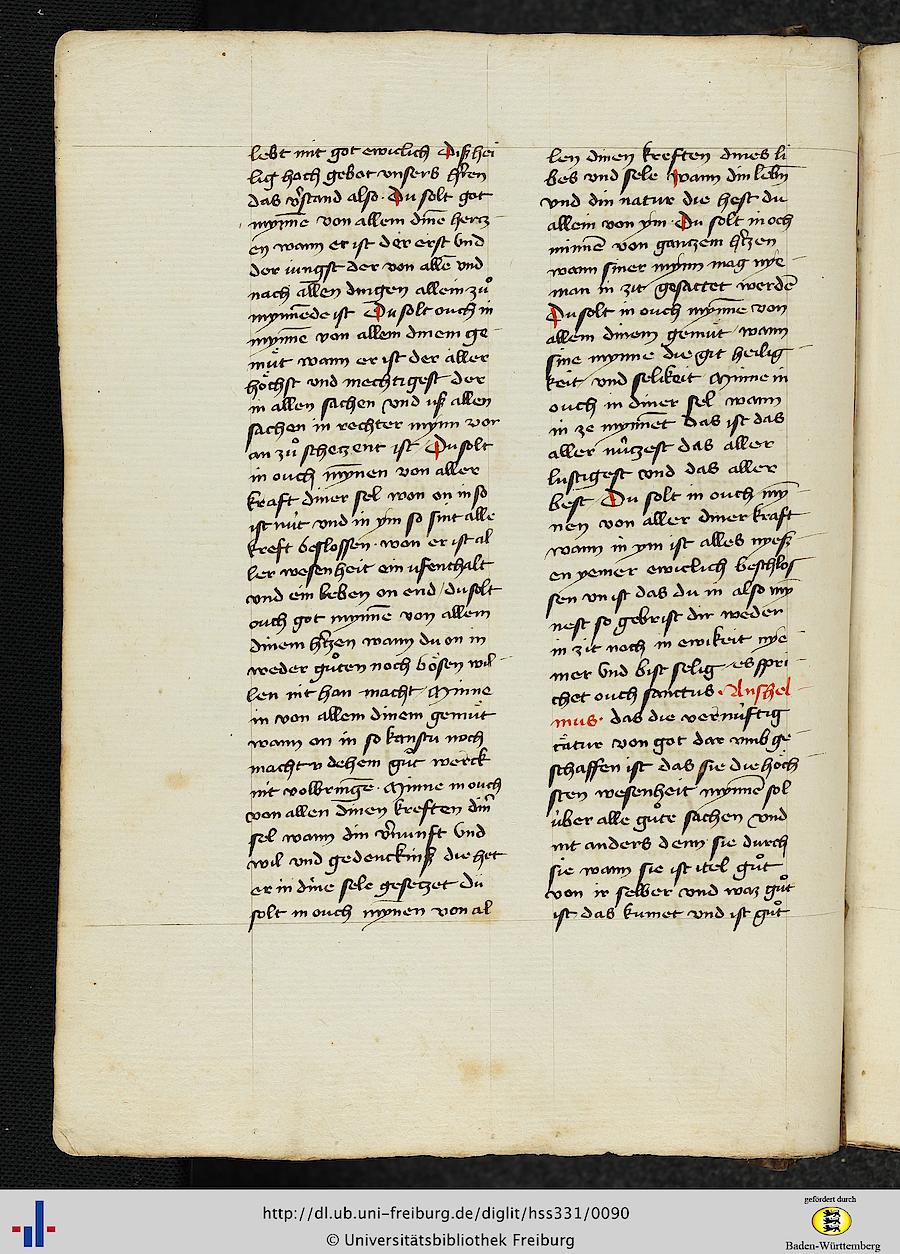 lebt mit got ewiclich Disz hei
lig hoch gebot vnsers h̄ren
das v̄stand also · Du solt got
mȳne von allem dinē hercz
en wann er ist der erst vnd
der iungst der von allē vnd
nach allen dingen allein zů
mynnēde ist Du solt ouch in
mȳne von allem dinem ge
můt wann er ist der aller
höchst vnd mechtigest der
in allen sachen vnd usz allen
sachen in rechter mynn vor
an zů schetzent ist Du solt
in ouch mȳnen von aller
kraft diner sel won on in so
ist nút vnd in ym so sint alle
kreft beslossen · won er ist al
ler wesenheit ein ufenthalt
vnd ein leben on end / du solt
ouch got mynnē von allem
dinem h̄tzen wann du on in
weder gůten noch bösen wil
len nit han macht Minne
in von allem dinem gemůt
wann on in so kanstu noch
macht u dehem gůt werck
nit volbringē · Minne in ouch
von allen dinen kreften din̄
sel wann din v̄nunft vnd
wil vnd gedencknisz die het
er in dine sele gesetzet Du
solt in ouch mȳnen von al
len dinen kreften dines li
bes vnd sele wann din lib
vnd din natur die hest du
allein von ym · Du solt in och
minnē von gantzem h̄tzen
wann siner mynn mag nye
man in zit gesattet werdē
Du solt in ouch mȳne von
allem dinem gemůt / wann
sine mynne die git heilig
keit vnd selikeit Minne in
ouch in diner sel wann
in ze mynnēt das ist das
aller nútzest das aller
lustigest vnd das aller
best Du solt in ouch mȳ
nen von aller diner kraft
wann in ym ist alles wesz
en yemer ewiclich beschlos
sen vn ist das du in also mȳ
nest so gebrist dir weder
in zit noch in ewikeit nye
mer vnd bist selig · es spri
chet ouch sanctus · Anshel
mus · das die vernúftig
c̄atur von got dar vmb ge
schaffen ist das sie die höch
sten wesenheit mynnē sol
úber alle gůte sachen vnd
nit anders denn sie durch
sie wann sie ist itel gůt
von ir selber vnd waz gůt
ist das kumet vnd ist gůt
http://dl.ub.uni-freiburg.de/diglit/hss331/0090
© Universitätsbibliothek Freiburg
gefördert durch
Baden-Württemberg